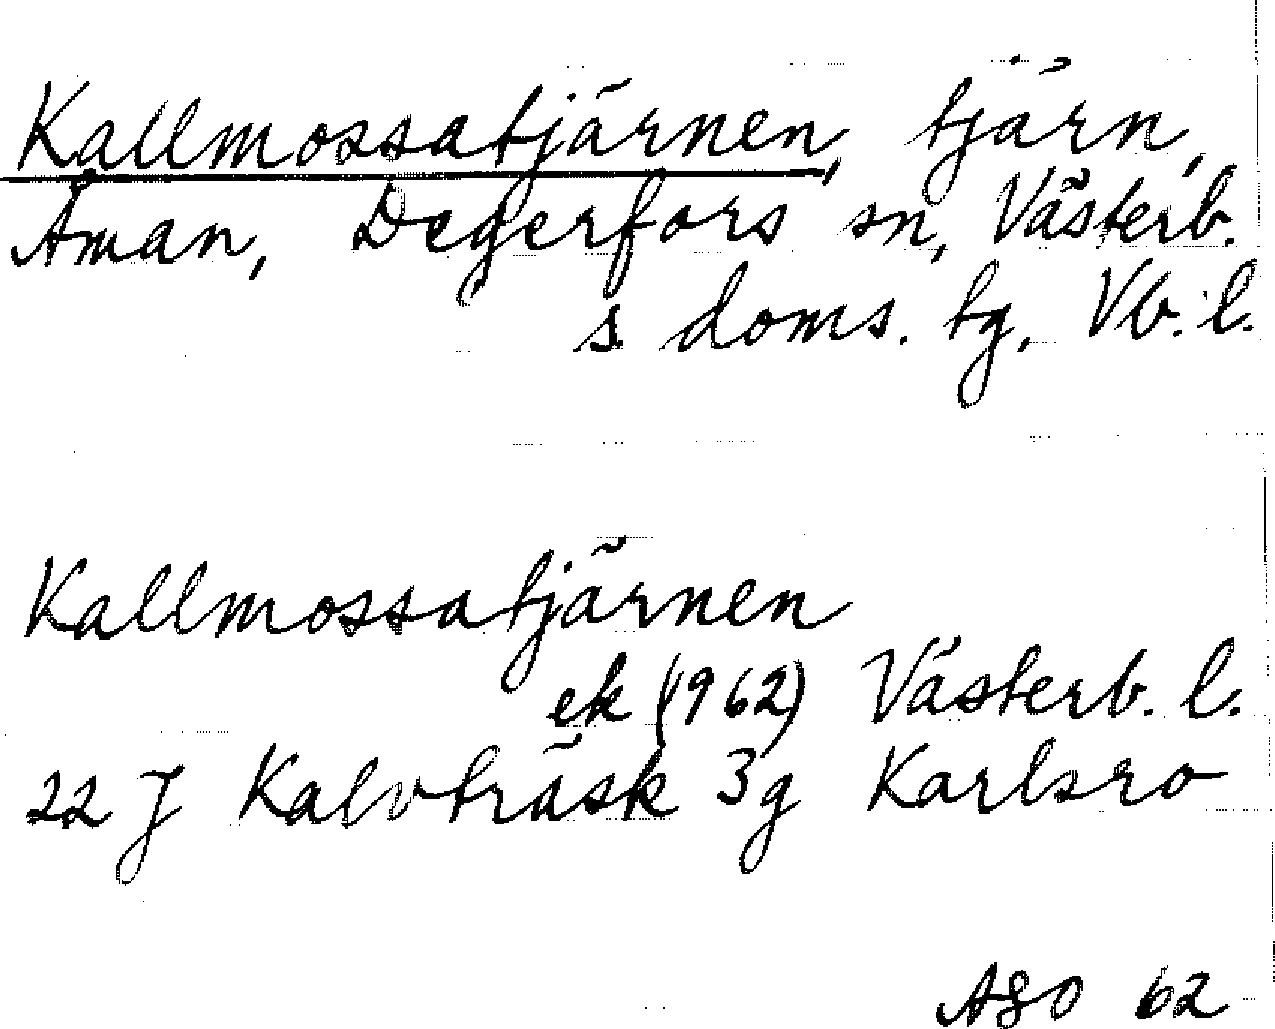 Kallmossatjärnen, tjärn,
Åman, Degerfors sn, Västerb.
s doms. tg, Vb. l.
Kallmossatjärnen
ek (1962) Västerb. l.
22 J Kalvträsk 3g Karlsro
ASO 62